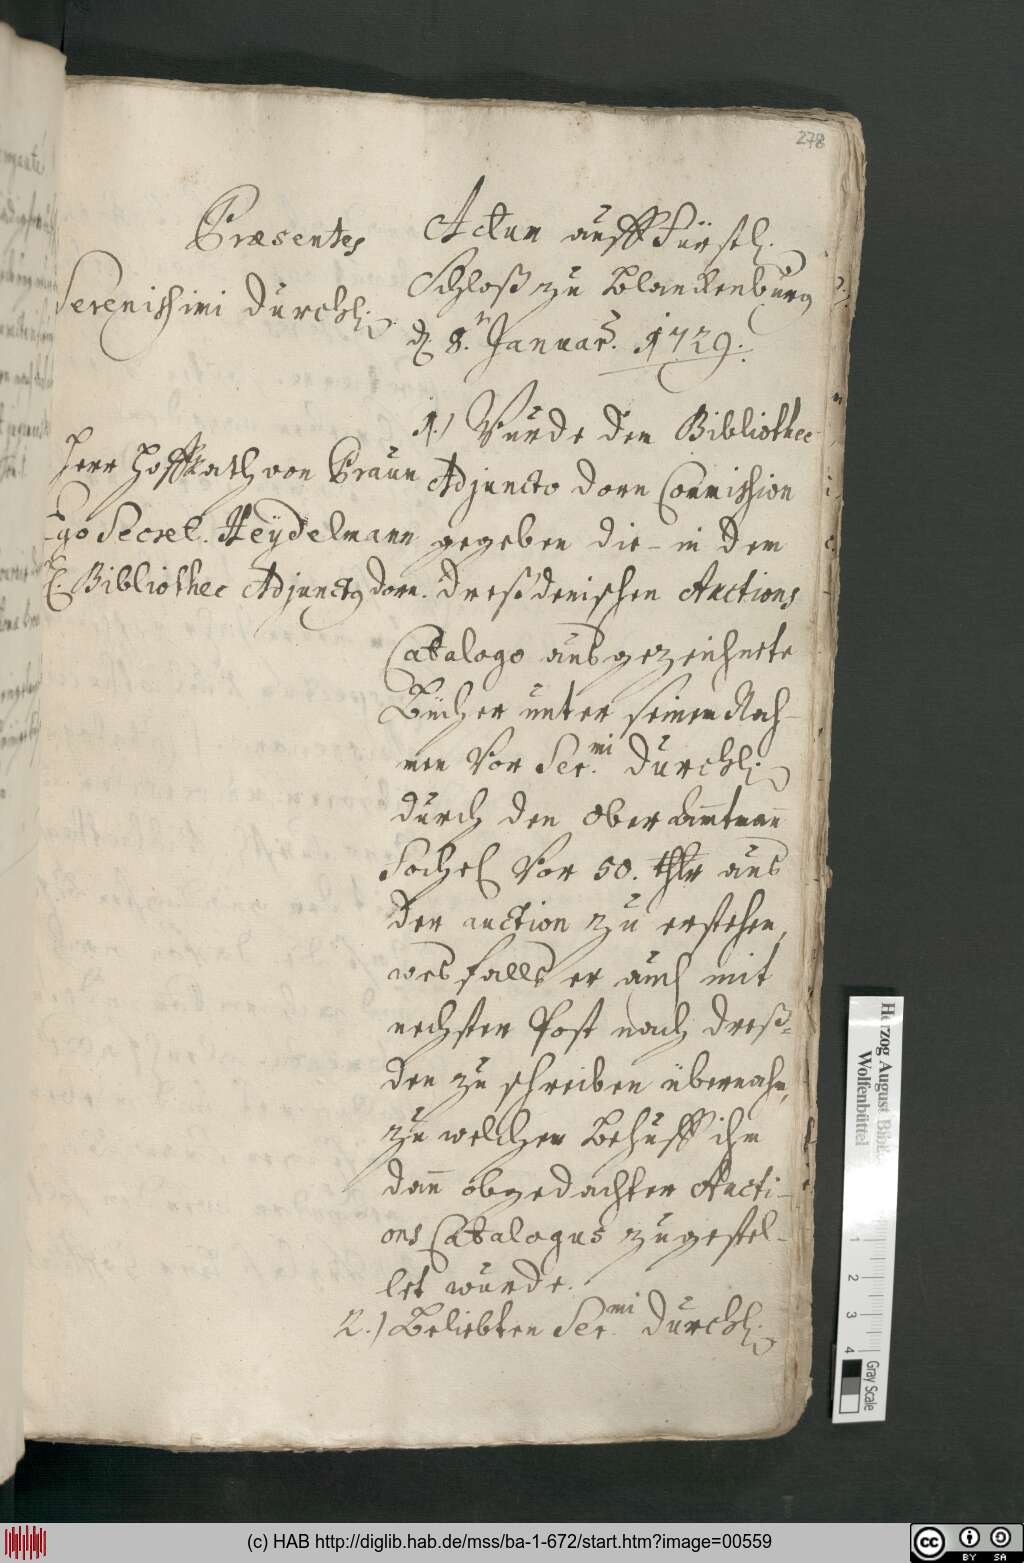 278
Præsentes
Serenissimi Durchl.
Herr Hoffrath von Praun
Ego Secret. Heÿdelmann
E. Bibliothec Adjunctg Dorn.
Actum auff Fürstl.
Schloß zu Blanckenburg
d. 8.n Januar. 1729.
1.) Wurde dem Bibliothec
Adjuncto Dorn Commission
gegeben die in dem
Dreßdenischen Auctions
Catalogo ausgezeichnete
Bücher unter seinem Nah-
men vor Ser.mi Durchl.
durch den Ober Amtmann
Sochel vor 50. thlr aus
der auction zu erstehen,
wesfalls er auch mit
nechster Post nach Dreß-
den zu schreiben übernahm,
zu welchem Behuff ihm
dann obgedachter Aucti-
ons Catalogus zugestel-
let wurde.
2.) Beliebten Ser.mi Durchl.
Herzog August Bibl.
Wolfenbüttel
1 2 3 4
Gray Scale
(c) HAB http://diglib.hab.de/mss/ba-1-672/start.htm?image=00559
cc BY SA